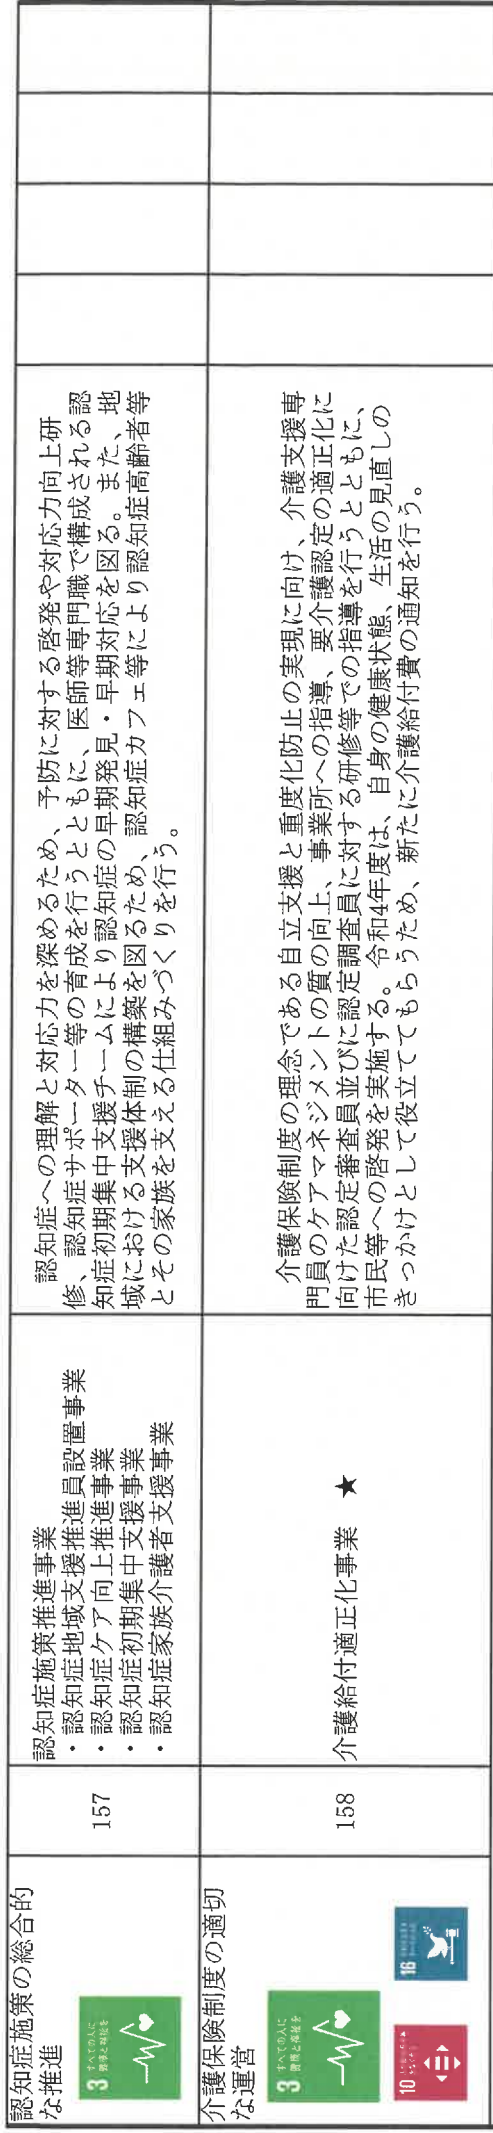 認知症施策の総合的
な推進
3 すべての人に
健康と福祉を
157
認知症施策推進事業
・認知症地域支援推進員設置事業
・認知症ケア向上推進事業
・認知症初期集中支援事業
・認知症家族介護者支援事業
認知症への理解と対応力を深めるため、予防に対する啓発や対応力向上研
修、認知症サポーター等の育成を行うとともに、医師等専門職で構成される認
知症初期集中支援チームにより認知症の早期発見・早期対応を図る。また、地
域における支援体制の構築を図るため、認知症カフェ等により認知症高齢者等
とその家族を支える仕組みづくりを行う。
介護保険制度の適切
な運営
3 すべての人に
健康と福祉を
10
16
158
介護給付適正化事業 ★
介護保険制度の理念である自立支援と重度化防止の実現に向け、介護支援専
門員のケアマネジメントの質の向上、事業所への指導、要介護認定の適正化に
向けた認定審査員並びに認定調査員に対する研修等での指導を行うとともに、
市民等への啓発を実施する。令和4年度は、自身の健康状態、生活の見直しの
きっかけとして役立ててもらうため、新たに介護給付費の通知を行う。